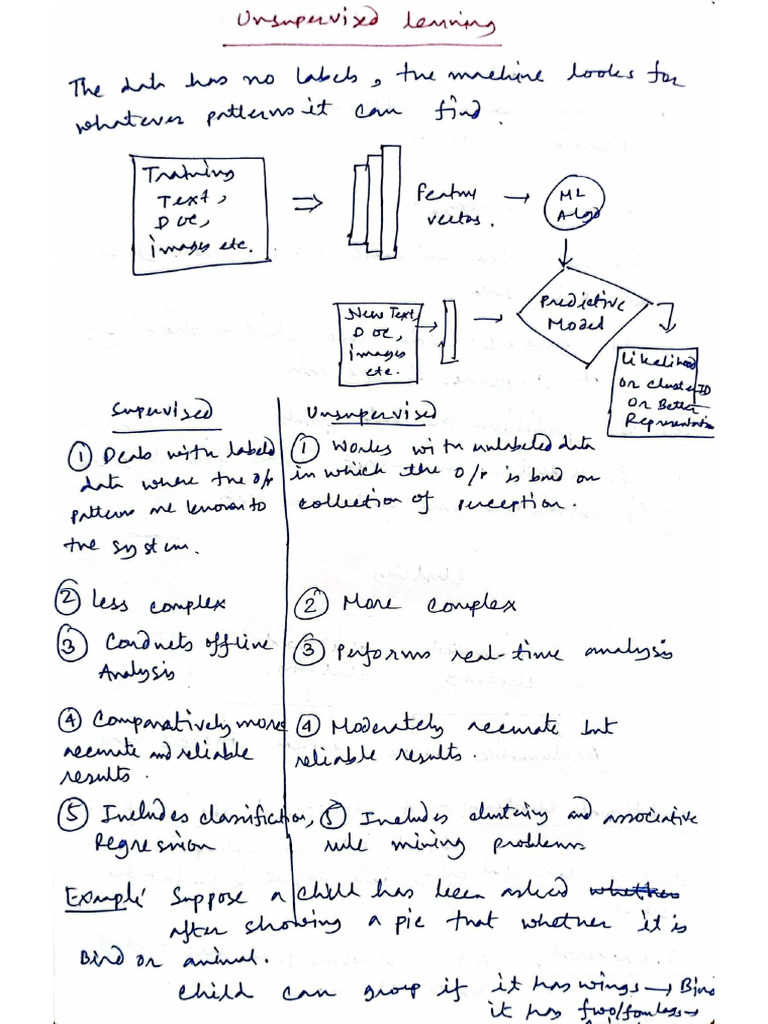 Unsupervised Learning
The data has no labels, the machine looks for
whatever patterns it can find.
Training
Text,
Doc,
images etc.
Feature
vectos.
ML
Algo
New Text,
Doc,
images
etc.
Predictive
Model
Likelihood
or cluster ID
or Better
Representation
Supervised
① Deals with labeled
data where the o/p
patterns are known to
the system.
② Less complex
③ Conducts offline
Analysis
④ Comparatively more
accurate and reliable
results.
⑤ Includes classification,
Regression
Unsupervised
① Works with unlabeled data
in which the o/p is based on
collection of perception.
② More complex
③ Performs real-time analysis
④ Moderately accurate but
reliable results.
⑤ Includes clustering and associative
rule mining problems
Example: Suppose a child has been asked whether
after showing a pic that whether it is
Bird or animal.
Child can group if it has wings → Bird
it has two/four legs →